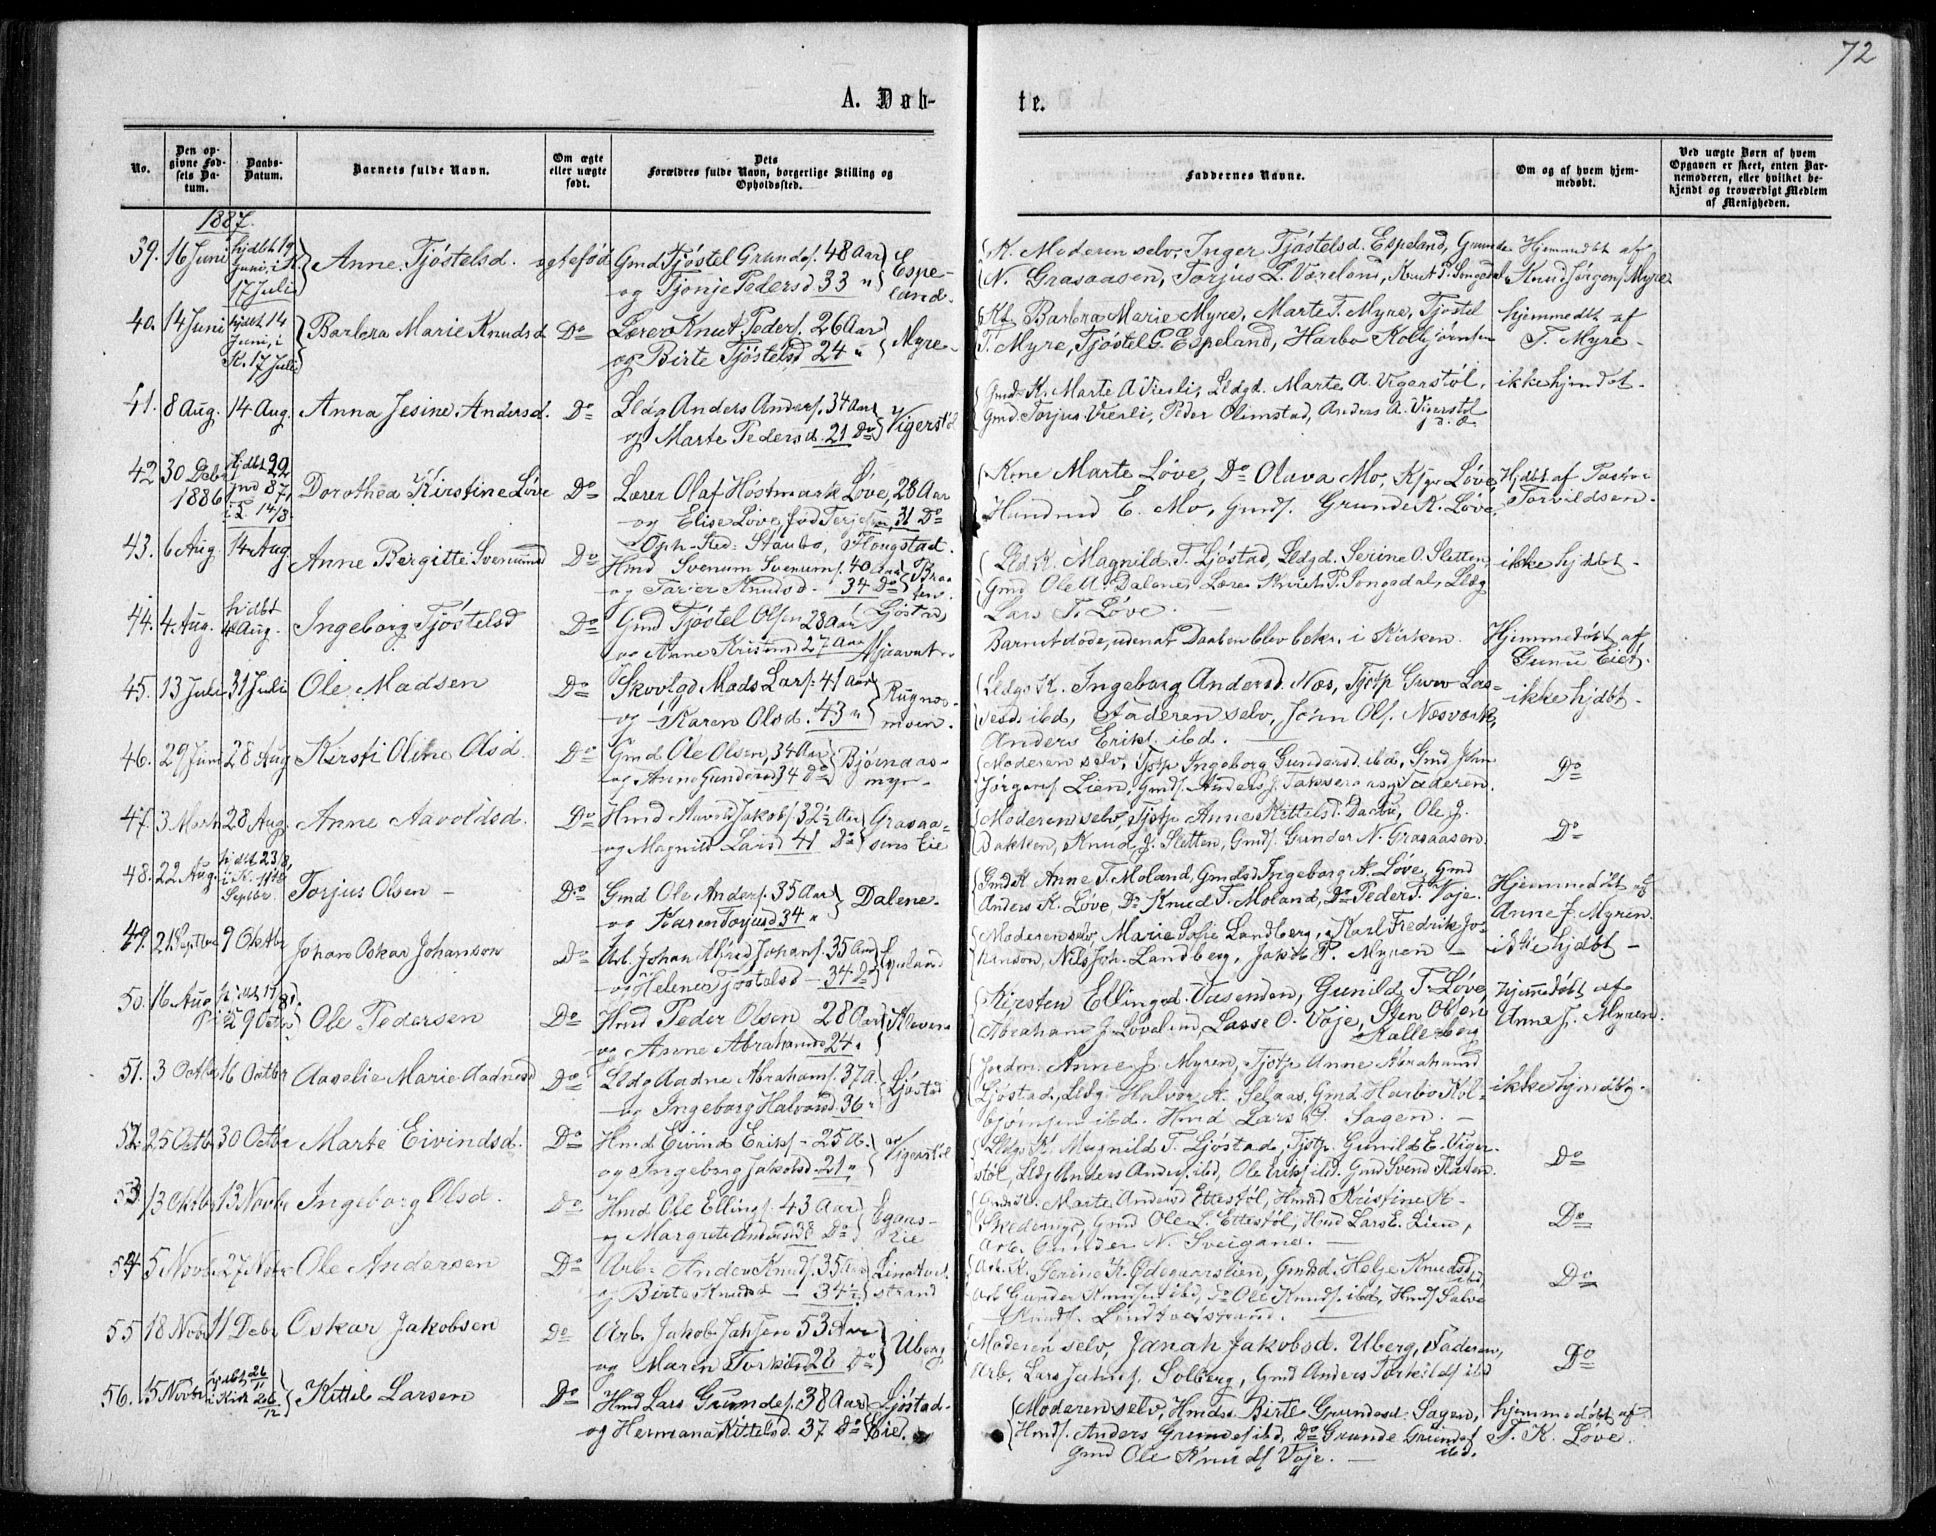 72
A. Døb-
te.
No.
Den op-
givne Fød-
sels Da-
tum.
Daabs-
Datum.
Barnets fulde Navn.
Om ægte
eller uægte
født.
Dets
Forældres fulde Navn, borgerlige Stilling og
Opholdssted.
Faddernes Navne.
Om og af hvem hjem-
medøbt.
Ved uægte Børn af hvem
Opgaven er skeet, enten Bar-
nemoderen, eller hvilket be-
kjendt og troværdigt Medlem
af Menigheden.
1887.
39. 16 Juni hjdbt 19 Juni, i K. 17 Juli Anne Tjøstelsd. ægtefød Gmd Tjøstel Grundes. 48 Aar
og Tjønje Pedersd. 33 " Espeland.
K. Moderen selv, Inger Tjøstelsd. Espeland, Grunde
N. Grasaasen, Torjus L. Væreland, Knut P. Songedal
Hjemmedbt af
Knud Jørgens. Myre
40. 14 Juni hjdbt 14 Juni, i K. 17 Juli Barbra Marie Knudsd Do Lærer Knut Peders. 26 Aar
og Birte Tjøstelsd 24 " Myre
Barbra Marie Myre, Marte T. Myre, Tjøstel
T. Myre, Tjøstel G. Espeland, Harbo Kolbjørnsen
hjemmedt af
T. Myre
41. 8 Aug. 14 Aug. Anna Jesine Andersd. Do Lldg Anders Anders. 34 Aar
og Marte Pedersd. 21 Do Vigerstøl
Gmds K. Marte A Vierli, Lldgd. Marte A. Vigerstøl,
Gmd. Torjus Vierli, Peder Olimstad, Anders A. Vigerstøl
ikke hjmdbt.
42 30 Debr 1886 hjdbt 22 Dorothea Kirstine Løve Do Lærer Olaf Høstmark Løve, 28 Aar
og Elise Løve, fød Terjesen, 31 Do
Oph. Sted: Staubø, Flougstad.
Kone Marte Løve, Do Olava Mo, Løve,
E. Mo, Gmds. Grunde K. Løve,
Hjdbt af Pastor
Torvildsen
43. 6 Aug 14 Aug Anne Bergitte Svenumsd Do Hmd Svenum Svenums. 40 Aar
og Tarjer Knudsd. 34 Do
Ljøstad
Lld. K. Magnild T. Ljøstad, Lldgd. Serine O. Sletten,
Gmd Ole A Dalene, Lærer Knut P. Songedal, Lldg
Lars T. Løve
ikke hjdbt
44. 4 Aug. hjdbt 4 Aug. Ingeborg Tjøstelsd Do Gmd Tjøstel Olsen 28 Aar
og Anne Kristensd 27 Aar Mjaavatn
Barnet døde, uden at Daaben blev bekr. i Kirken.
Hjemmedøbt af
45. 13 Juli 31 Juli Ole Madsen Do Skovlgd Mads Lars. 41 Aar
og Karen Olsd. 43 "
Lldgs K. Ingeborg Andersd. Næs, Tjstp Guro Las-
sesd. ibd, Faderen selv, John Ols. Næsværk,
Anders Eriks. ibd.
ikke hjdbt
46. 29 Juni 28 Aug Kirsti Oline Olsd. Do Gmd Ole Olsen, 34 Aar
og Anne Gundersd 34 Do Bjønaas-
myr
Moderen selv, Tjstp Ingeborg Gundersd. ibd, Gmd John
Jørgens. Lien, Gmds. Anders J. og Faderen.
Do
47. 3 Marts 28 Aug. Anne Aavoldsd. Do Hmd Aavold Jakobs. 32½ Aar
og Magnild Larsd 41 Do Grasaa-
sens Eie
Moderen selv, Tjstp Anne Kittelsd. Darbu, Ole J.
Bakken, Knud J. Sletten, Gmds. Gunder N. Grasaasen
Do
48. 22 Aug. hjdbt 23/8, i K. 11te Septbr Torjus Olsen Do Gmd Ole Anders. 35 Aar
og Karen Torjusd 34 " Dalene
Gmds K Anne T. Moland, Gmdsd Ingeborg A. Løve, Gmd
Anders K. Løve, Do Knud T. Moland, Do Peder T. Voje
Hjemmedøbt af
Anne J. Myren.
49. 21 Septbr 9 Oktbr Johan Oskar Johanson Do Arb. Johan Alfred Johans. 35 Aar
og Helene Tjøstelsd 34 Do
Moderen selv, Marie Sofie Landberg, Karl Fredrik Jo-
hanson, Nils Joh. Landberg, Jakob P. Myren
ikke hjdbt
50. 16 Aug hjdbt 17/8 i K 9 Octbr Ole Pedersen Do Hmd Peder Olsen 28 Aar
og Anne Abrahamsd 24 "
Kirsten Ellingsd. Vaasenden, Gunild T. Løve,
Abraham J. Løveland, Lasse O. Voje, Sten Olsen
Kalleberg
hjemmedøbt af
Anne J. Myren.
51. 3 Octbr 16 Octbr Aaselie Marie Aadnesd Do Lldg Aadne Abrahams. 37 A.
og Ingeborg Halvorsd. 36 " Ljøstad
Jordm. Anne J. Myren, Tjstp Anne Abrahamsd
Ljøstad, Lldg. Halvor A. Selaas, Gmd Harbo Kol-
bjørnsen ibd. Hmd Lars G. Sagen.
ikke hjmdbt.
52. 25 Octbr 30 Octbr Marte Eivindsd. Do Hmd Eivind Eriks. 25 A.
og Ingeborg Jakobsd. 21 " Vigerstøl
Lldgs K. Magnild T. Ljøstad, Tjstp. Gunild E. Viger-
støl, Lldg Anders Anders. ibd, Ole Eriks. ibd. Gmd Svend Flaten.
Do
53 13 Oktbr 13 Novbr Ingeborg Olsd. Do Hmd Ole Ellings. 43 Aar
og Margrete Andersd 38 Do Egaas-
Eie
Marte Andersd Ettestøl, Hmsd Kristine K.
Gmd Ole L. Ettestøl, Hmd Lars E. Lien,
Arb. Gunder N. Sveigane.
Do
54 5 Novbr 27 Novbr Ole Andersen Do Arb. Anders Knuds. 35 Aar
og Birte Knudsd 34½
strand
Arb. K. Serine K. Ødegaarslien, Gmdsd. Helje Knudsd ibd,
Arb Gunder Knudsen ibd, Do Ole Knuds. ibd, Hmds Salve
Knuds.
Do
55 18 Novbr 11 Debr Oskar Jakobsen Do Arb. Jakob Jahsen 53 Aar
og Maren Torkildsd 28 Do Uberg
Moderen selv, Janah Jakobsd. Uberg, Faderen,
Arb. Lars Solberg, Gmd Anders Torkilds. ibd
Do
56. 15 Novbr hjdbt 26/11 i Kirk 26/12 Kittel Larsen Do Hmd Lars Grundes. 38 Aar
og Hermana Kittelsd. 37 Do Ljøstad-
Eie.
Moderen selv, Hmds Birte Grundesd. Sagen,
Hmds. Anders Grundes. ibd, Do Grunde Grundes. ibd.
Gmd Ole Knuds. Voje.
hjemmedøbt af
T. K. Løve.